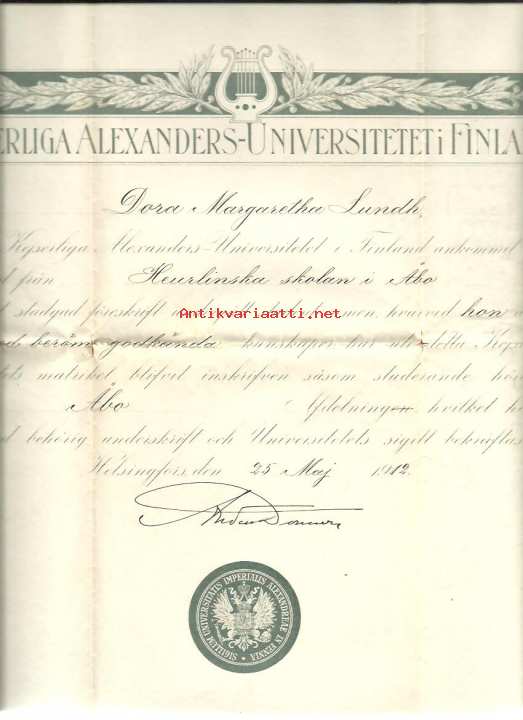 ERLIGA ALEXANDERS-UNIVERSITETET i FINLA
Dora Margaretha Lundh,
Kejserliga Alexanders-Universitetet i Finland ankommen
från Heurlinska skolan i Åbo
stadgad föreskrift examen, hvarvid hon
Antikvariaatti.net
beröm godkända kunskaper har uti detta Kejs
matrikel blifvit inskrifven såsom studerande hör
Åbo Afdelningen hvilket h
behörig underskrift och Universitetets sigill bekräftas
Helsingfors, den 25 Maj 1912.
SIGILLUM UNIVERSITATIS IMPERIALIS ALEXANDREAE IN FENNIA